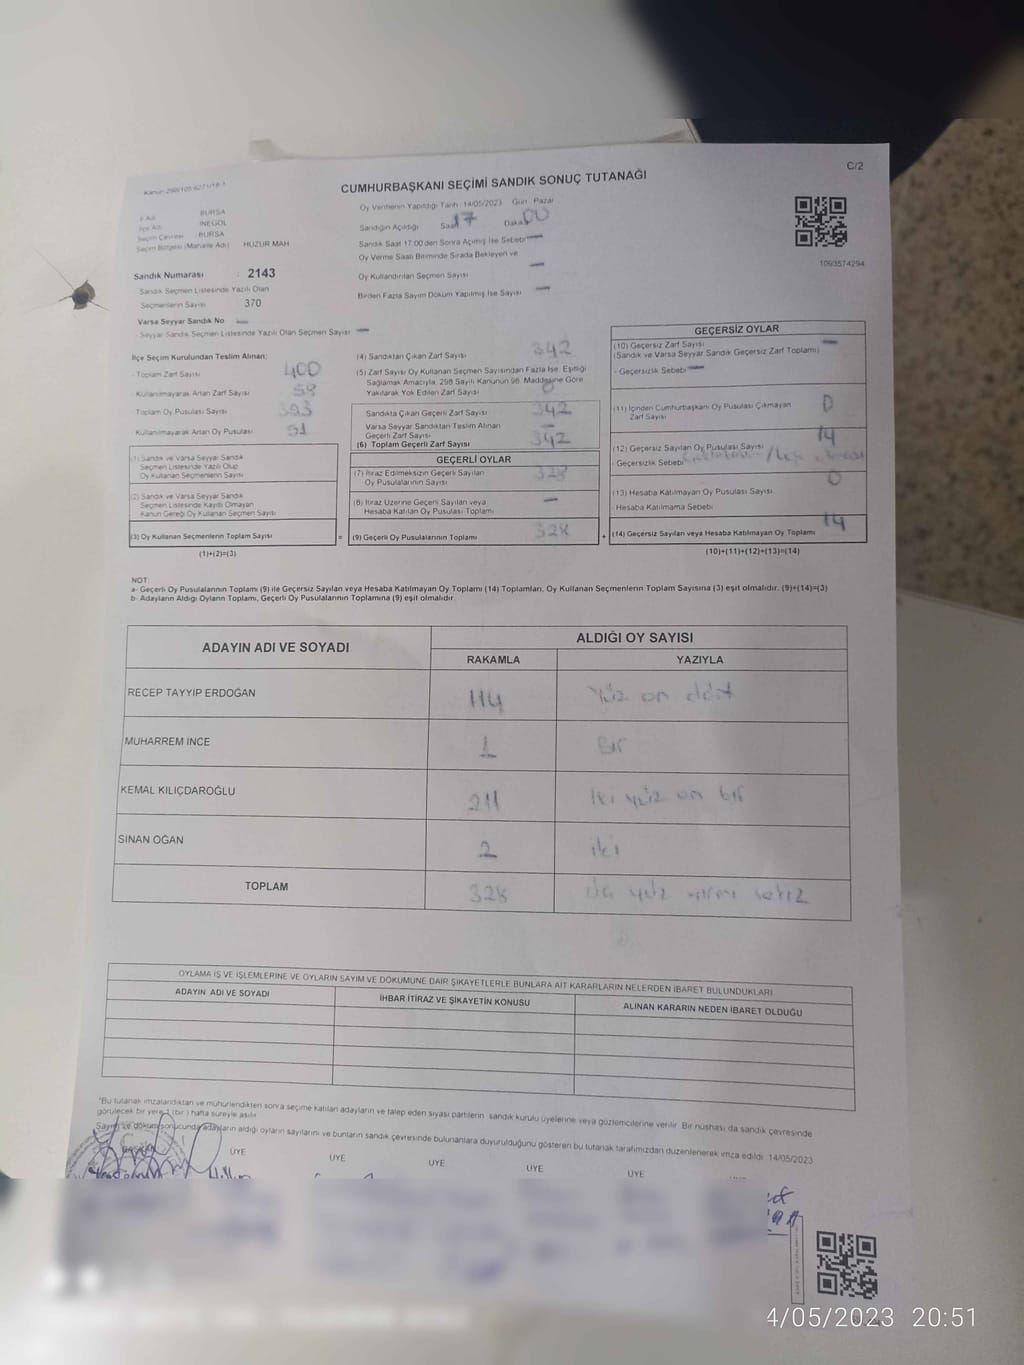 C/2
CUMHURBAŞKANI SEÇİMİ SANDIK SONUÇ TUTANAĞI
Oy Vermenin Yapıldığı Tarih: 14/05/2023 Gün: Pazar
İl Adı BURSA
İlçe Adı İNEGÖL
Seçim Çevresi BURSA
Seçim Bölgesi (Mahalle Adı) HUZUR MAH
Sandığın Açıldığı Saat 17 Dakika 00
Sandık Saat 17:00'den Sonra Açılmış İse Sebebi —
Oy Verme Saati Bitiminde Sırada Bekleyen ve
Oy Kullandırılan Seçmen Sayısı —
Birden Fazla Sayım Döküm Yapılmış İse Sayısı —
1093574294
Sandık Numarası : 2143
Sandık Seçmen Listesinde Yazılı Olan
Seçmenlerin Sayısı 370
Varsa Seyyar Sandık No —
- Seyyar Sandık Seçmen Listesinde Yazılı Olan Seçmen Sayısı —
İlçe Seçim Kurulundan Teslim Alınan;
- Toplam Zarf Sayısı 400
Kullanılmayarak Artan Zarf Sayısı 58
Toplam Oy Pusulası Sayısı 393
Kullanılmayarak Artan Oy Pusulası 51
(1) Sandık ve Varsa Seyyar Sandık
Seçmen Listesinde Yazılı Olup
Oy Kullanan Seçmenlerin Sayısı
(2) Sandık ve Varsa Seyyar Sandık
Seçmen Listesinde Kayıtlı Olmayan
Kanun Gereği Oy Kullanan Seçmen Sayısı
(3) Oy Kullanan Seçmenlerin Toplam Sayısı
(1)+(2)=(3)
(4) Sandıktan Çıkan Zarf Sayısı 342
(5) Zarf Sayısı Oy Kullanan Seçmen Sayısından Fazla İse, Eşitliği
Sağlamak Amacıyla, 298 Sayılı Kanunun 98. Maddesine Göre
Yakılarak Yok Edilen Zarf Sayısı 0
Sandıkta Çıkan Geçerli Zarf Sayısı 342
Varsa Seyyar Sandıktan Teslim Alınan
Geçerli Zarf Sayısı —
(6) Toplam Geçerli Zarf Sayısı 342
GEÇERLİ OYLAR
(7) İtiraz Edilmeksizin Geçerli Sayılan
Oy Pusulalarının Sayısı 328
(8) İtiraz Üzerine Geçerli Sayılan veya
Hesaba Katılan Oy Pusulası Toplamı —
= (9) Geçerli Oy Pusulalarının Toplamı 328 +
GEÇERSİZ OYLAR
(10) Geçersiz Zarf Sayısı
(Sandık ve Varsa Seyyar Sandık Geçersiz Zarf Toplamı) —
- Geçersizlik Sebebi —
(11) İçinden Cumhurbaşkanı Oy Pusulası Çıkmayan
Zarf Sayısı 0
(12) Geçersiz Sayılan Oy Pusulası Sayısı 14
- Geçersizlik Sebebi
(13) Hesaba Katılmayan Oy Pusulası Sayısı 0
Hesaba Katılmama Sebebi
(14) Geçersiz Sayılan veya Hesaba Katılmayan Oy Toplamı 14
(10)+(11)+(12)+(13)=(14)
NOT:
a- Geçerli Oy Pusulalarının Toplamı (9) ile Geçersiz Sayılan veya Hesaba Katılmayan Oy Toplamı (14) Toplamları, Oy Kullanan Seçmenlerin Toplam Sayısına (3) eşit olmalıdır. (9)+(14)=(3)
b- Adayların Aldığı Oyların Toplamı, Geçerli Oy Pusulalarının Toplamına (9) eşit olmalıdır.
ADAYIN ADI VE SOYADI ALDIĞI OY SAYISI
RAKAMLA YAZIYLA
RECEP TAYYIP ERDOĞAN 114 Yüz on dört
MUHARREM İNCE 1 Bir
KEMAL KILIÇDAROĞLU 211 İki yüz on bir
SİNAN OĞAN 2 iki
TOPLAM 328 yüz yirmi sekiz
OYLAMA İŞ VE İŞLEMLERİNE VE OYLARIN SAYIM VE DÖKÜMÜNE DAİR ŞİKAYETLERLE BUNLARA AİT KARARLARIN NELERDEN İBARET BULUNDUKLARI
ADAYIN ADI VE SOYADI İHBAR İTİRAZ VE ŞİKAYETİN KONUSU ALINAN KARARIN NEDEN İBARET OLDUĞU
"Bu tutanak imzalandıktan ve mühürlendikten sonra seçime katılan adayların ve talep eden siyasi partilerin sandık kurulu üyelerine veya gözlemcilerine verilir. Bir nüshası da sandık çevresinde
görülecek bir yere 1 (bir) hafta süreyle asılır.
Sayım ve döküm sonucunda adayların aldığı oyların sayılarını ve bunların sandık çevresinde bulunanlara duyurulduğunu gösteren bu tutanak tarafımızdan düzenlenerek imza edildi. 14/05/2023
BAŞKAN ÜYE ÜYE ÜYE ÜYE ÜYE
4/05/2023 20:51